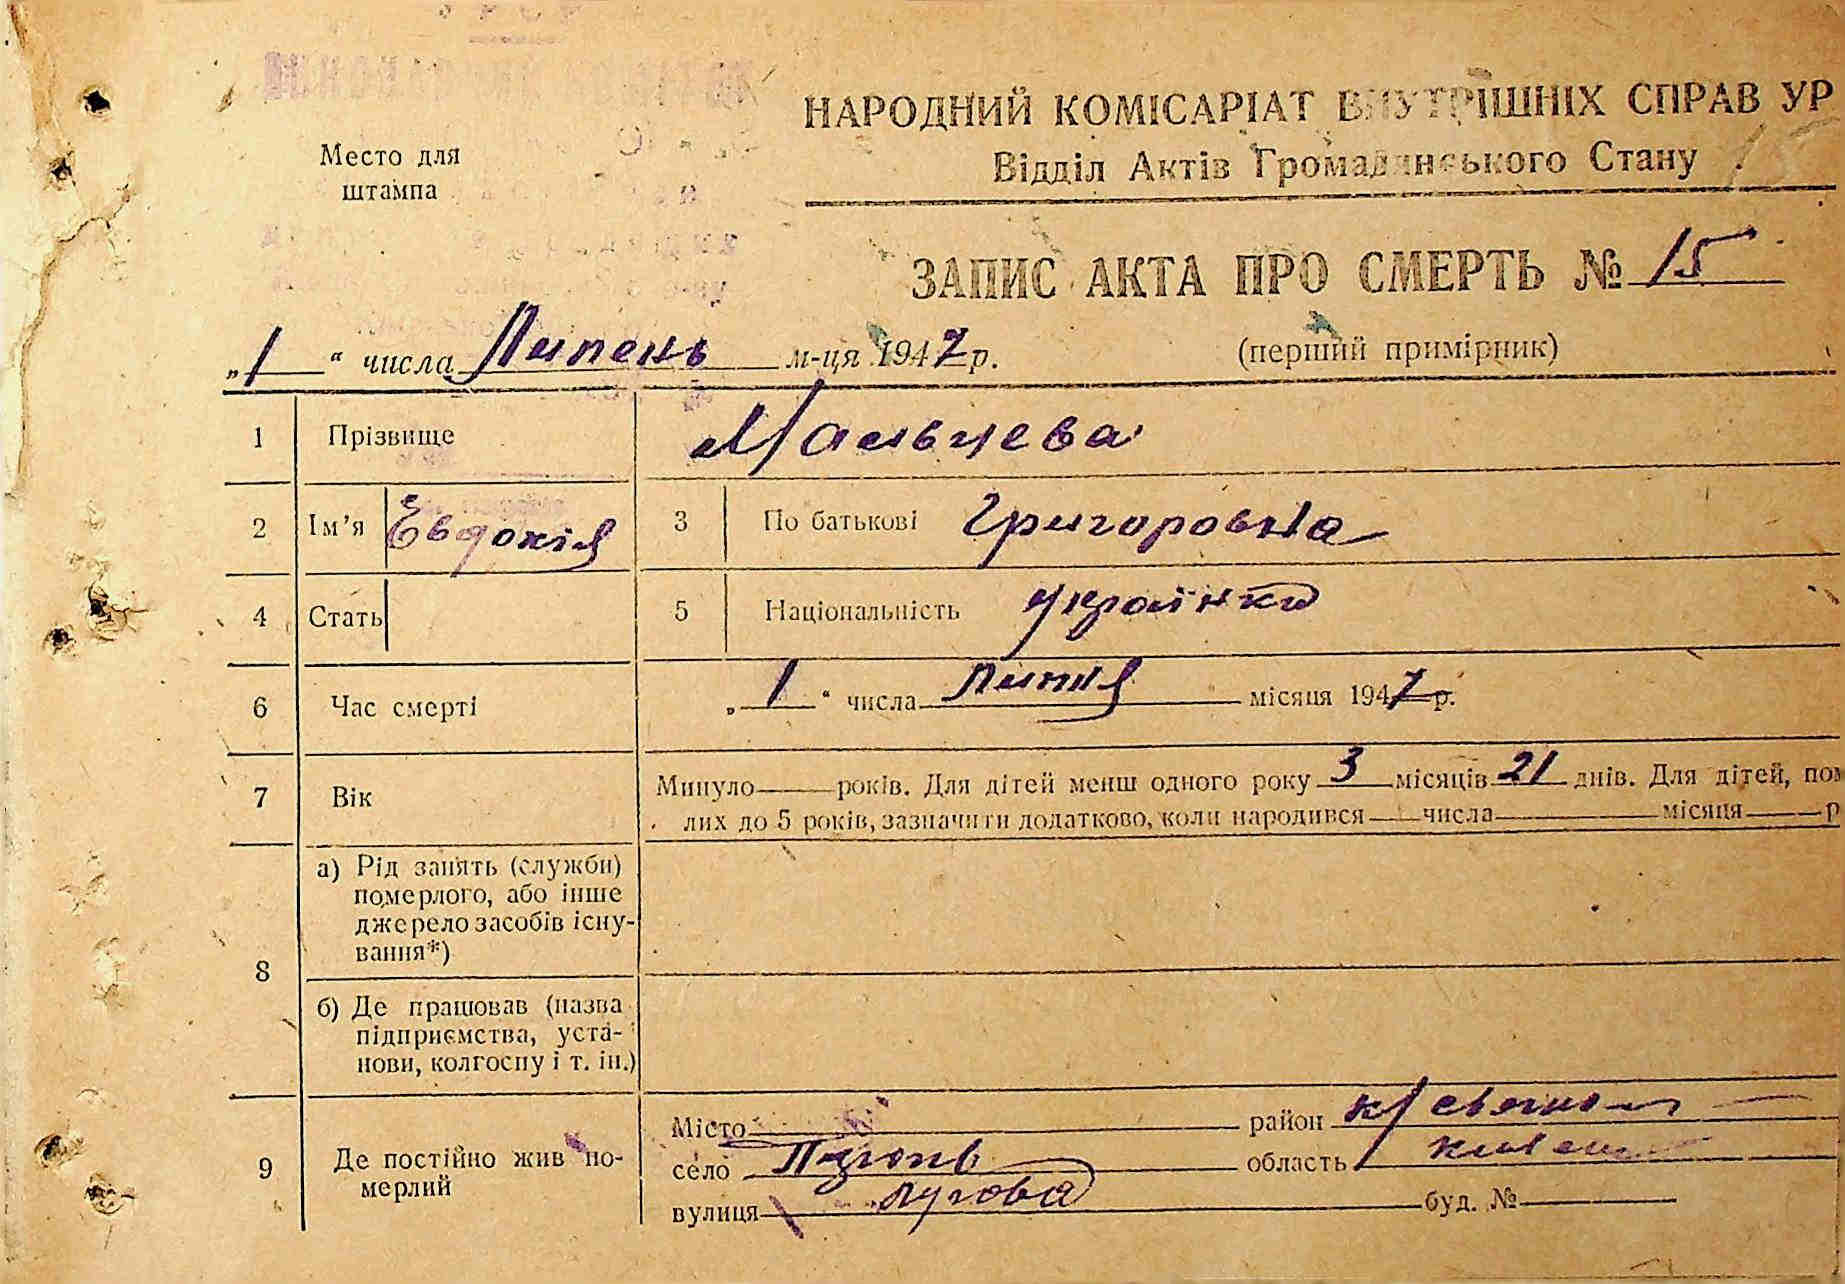 НАРОДНИЙ КОМІСАРІАТ ВНУТРІШНІХ СПРАВ УР
Відділ Актів Громадянського Стану
Место для
штампа
ЗАПИС АКТА ПРО СМЕРТЬ № 15
(перший примірник)
„1“ числа Липень м-ця 1947 р.
1 Прізвище Мальцева
2 Ім'я Евдокія 3 По батькові Григоровна
4 Стать 5 Національність українка
6 Час смерті „1“ числа Липня місяця 1947 р.
7 Вік Минуло років. Для дітей менш одного року 3 місяців 21 днів. Для дітей, пом
лих до 5 років, зазначити додатково, коли народився числа місяця р
8 а) Рід занять (служби)
померлого, або інше
джерело засобів існу-
вання*)
б) Де працював (назва
підприємства, уста-
нови, колгоспу і т. ін.)
9 Де постійно жив по-
мерлий
Місто район
село область
вулиця Лугова буд. №